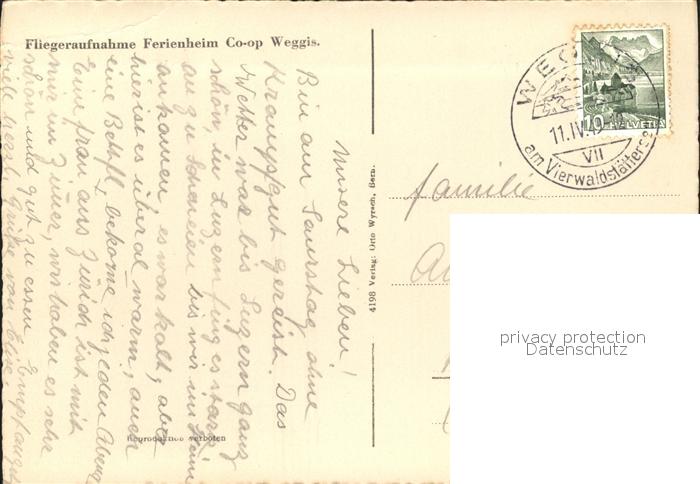 Fliegeraufnahme Ferienheim Co-op Weggis.
Meine Lieben!
Bin am Samstag ohne
Krampf gut gereist. Das
Wetter war bis Luzern ganz
schön, in Luzern fing es stark
an zu schneien bis wir ins Heim
ankamen, es war kalt, aber
hier ist es überal warm, auch
eine Bettfl, bekome ich jeden Abend
Eine frau aus Zürich ist mit
mir im Zimer, wir haben es sehr
schön und gut zu essen Empfangt
viele herzl. Grüße von Elise
Reproduktion verboten
4198 Verlag: Otto Wyrsch, Bern.
WEGGIS
11.IV.
VII
am Vierwaldstättersee
10 HELVETIA
familie
privacy protection
Datenschutz